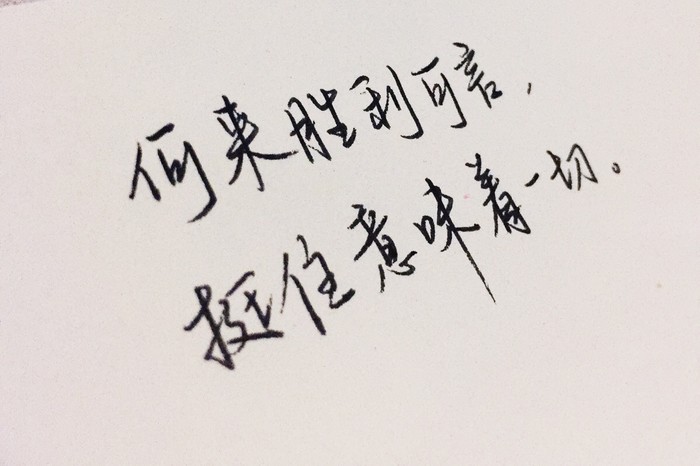 何来胜利可言，
挺住意味着一切。